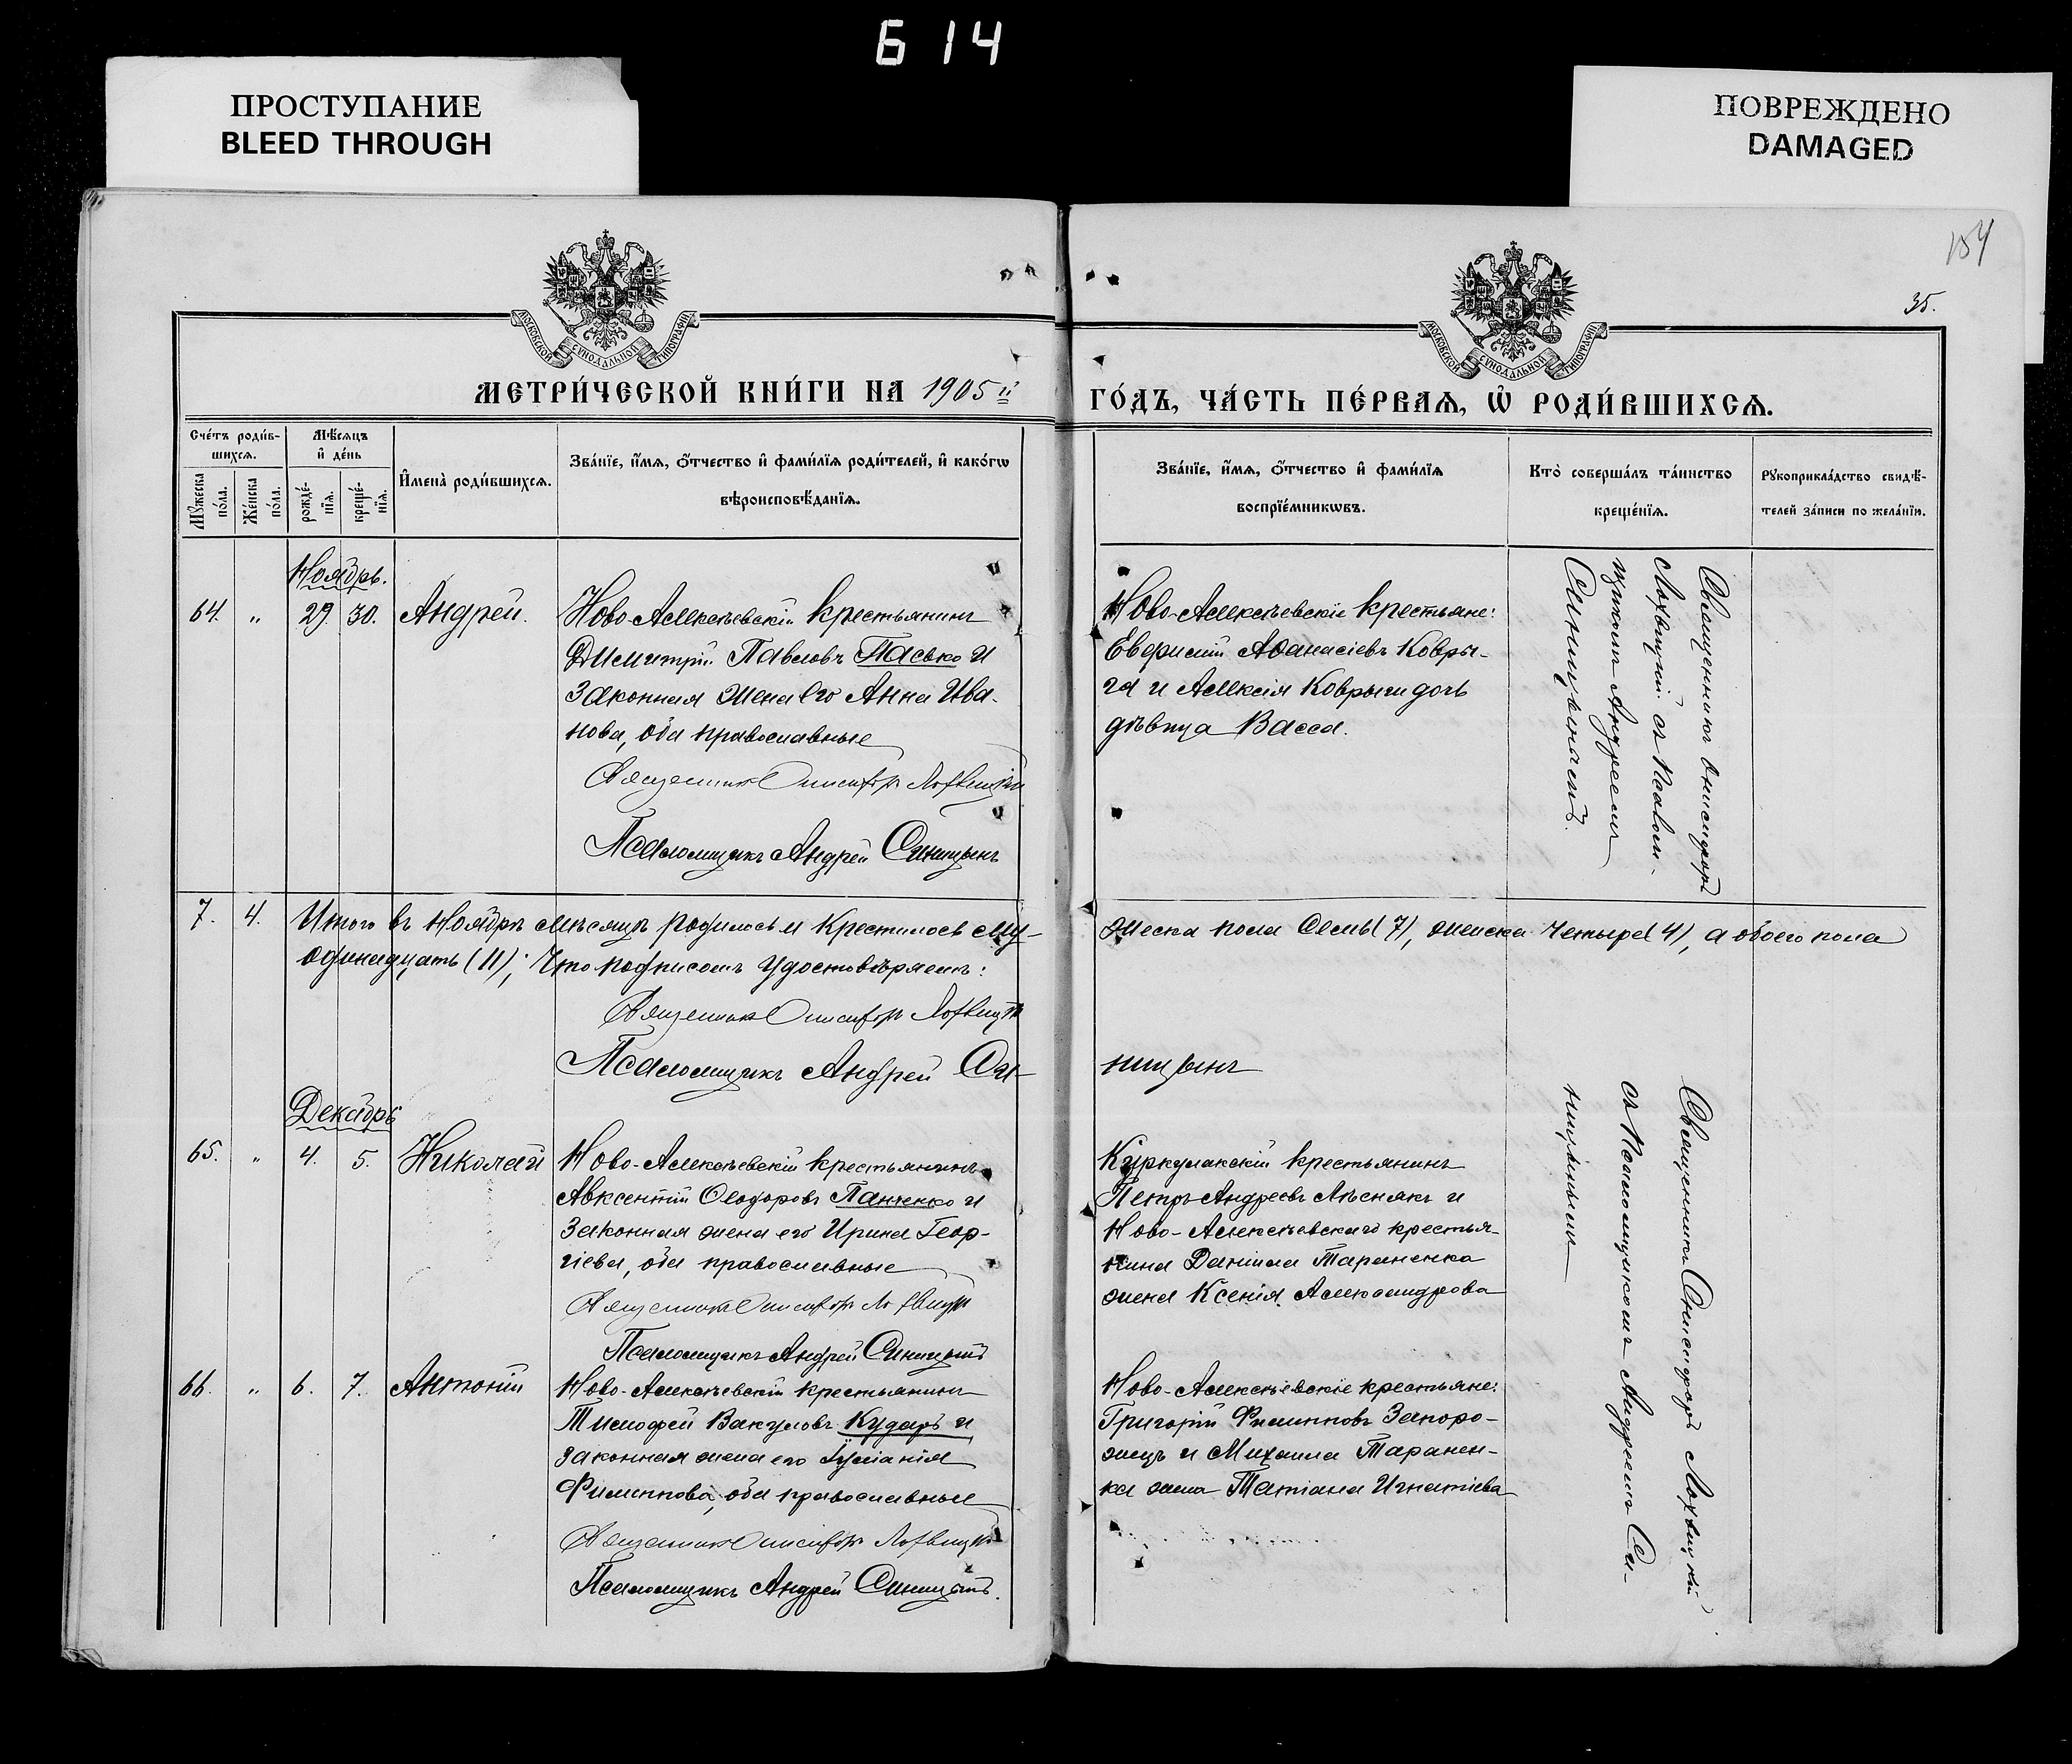 614
ПРОСТУПАНИЕ
BLEED THROUGH
ПОВРЕЖДЕНО
DAMAGED
154
35.
МОСКОВСКОЙ СѴНОДАЛЬНОЙ ТИПОГРАФІИ
МОСКОВСКОЙ СѴНОДАЛЬНОЙ ТИПОГРАФІИ
МЕТРИ́ЧЕСКОЙ КНИ́ГИ НА 1905й
ГО́ДЪ, ЧА́СТЬ ПЕ́РВАѦ, Ѽ РОДИ́ВШИХСѦ.
Сче́тъ роди́в-
шихся.
Мѣ́сяцъ
и҆ де́нь
Мꙋ́жеска по́ла.
Же́нска по́ла.
рожде́-
нїѧ.
креще́-
нїѧ.
И҆мена̀ роди́вшихсѧ.
Зва́нїе, и҆́мѧ, ѻ҆́тчество и҆ фами́лїѧ роди́телей, и҆ како́гѡ
вѣроисповѣ́данїѧ.
Зва́нїе, и҆́мѧ, ѻ҆́тчество и҆ фами́лїѧ
воспрїе́мникѡвъ.
Кто̀ соверша́лъ та́инство
креще́нїѧ.
Рꙋкоприкла́дство свидѣ́-
телей за́писи по жела́нїю.
Ноябрь.
64. " 29. 30. Андрей.
Ново-Алексѣевскій крестьянинъ
Димитрій Павловъ Пасько и
законная жена его Анна Ива-
нова, оба православные
Священникъ Онисифоръ Лохвицкій
Псаломщикъ Андрей Синицынъ
Ново-Алексѣевскіе крестьяне:
Еверисій Аѳанасіевъ Ковры-
га и Алексія Коврыги дочь
дѣвица Васса.
Священникъ Онисифоръ
Лохвицкій съ Псалом-
щикомъ Андреемъ
Синицынымъ.
7. 4. Итого въ Ноябрѣ мѣсяцѣ родилось и крестилось му-
жеска пола семь (7), женска четыре (4), а обоего пола
одинадцать (11); что подписомъ удостовѣряемъ:
Священникъ Онисифоръ Лохвицкій
Псаломщикъ Андрей Си-
ницынъ
Декабрь
65. " 4. 5. Николай
Ново-Алексѣевскій крестьянинъ
Авксентій Ѳеодоровъ Панченко и
законная жена его Ирина Геор-
гіева, оба православные
Священникъ Онисифоръ Лохвицкій
Псаломщикъ Андрей Синицынъ
Киркулакскій крестьянинъ
Петръ Андреевъ Лѣснякъ и
Ново-Алексѣевскаго крестья-
нина Даніила Тараненка
жена Ксенія Александрова
Священникъ Онисифоръ Лохвицкій
съ Псаломщикомъ Андреемъ Си-
ницынымъ
66. " 6. 7. Антоній
Ново-Алексѣевскій крестьянинъ
Тимофей Вакуловъ Кударь и
законная жена его Іуліанія
Филиппова, оба православные
Священникъ Онисифоръ Лохвицкій
Псаломщикъ Андрей Синицынъ.
Ново-Алексѣевскіе крестьяне:
Григорій Филипповъ Запоро-
жецъ и Михаила Таранен-
ка жена Татіана Игнатіева